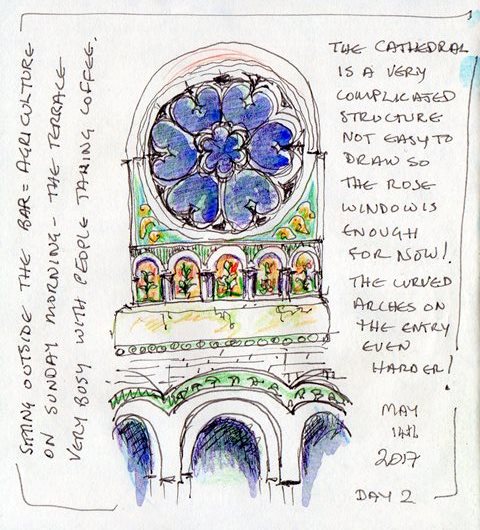 SITTING OUTSIDE THE BAR = AGRICULTURE
ON SUNDAY MORNING - THE TERRACE
VERY BUSY WITH PEOPLE TAKING COFFEE.
THE CATHEDRAL
IS A VERY
COMPLICATED
STRUCTURE
NOT EASY TO
DRAW SO
THE ROSE
WINDOW IS
ENOUGH
FOR NOW!
THE CURVED
ARCHES ON
THE ENTRY
EVEN
HARDER!
MAY
14th
2017
DAY 2